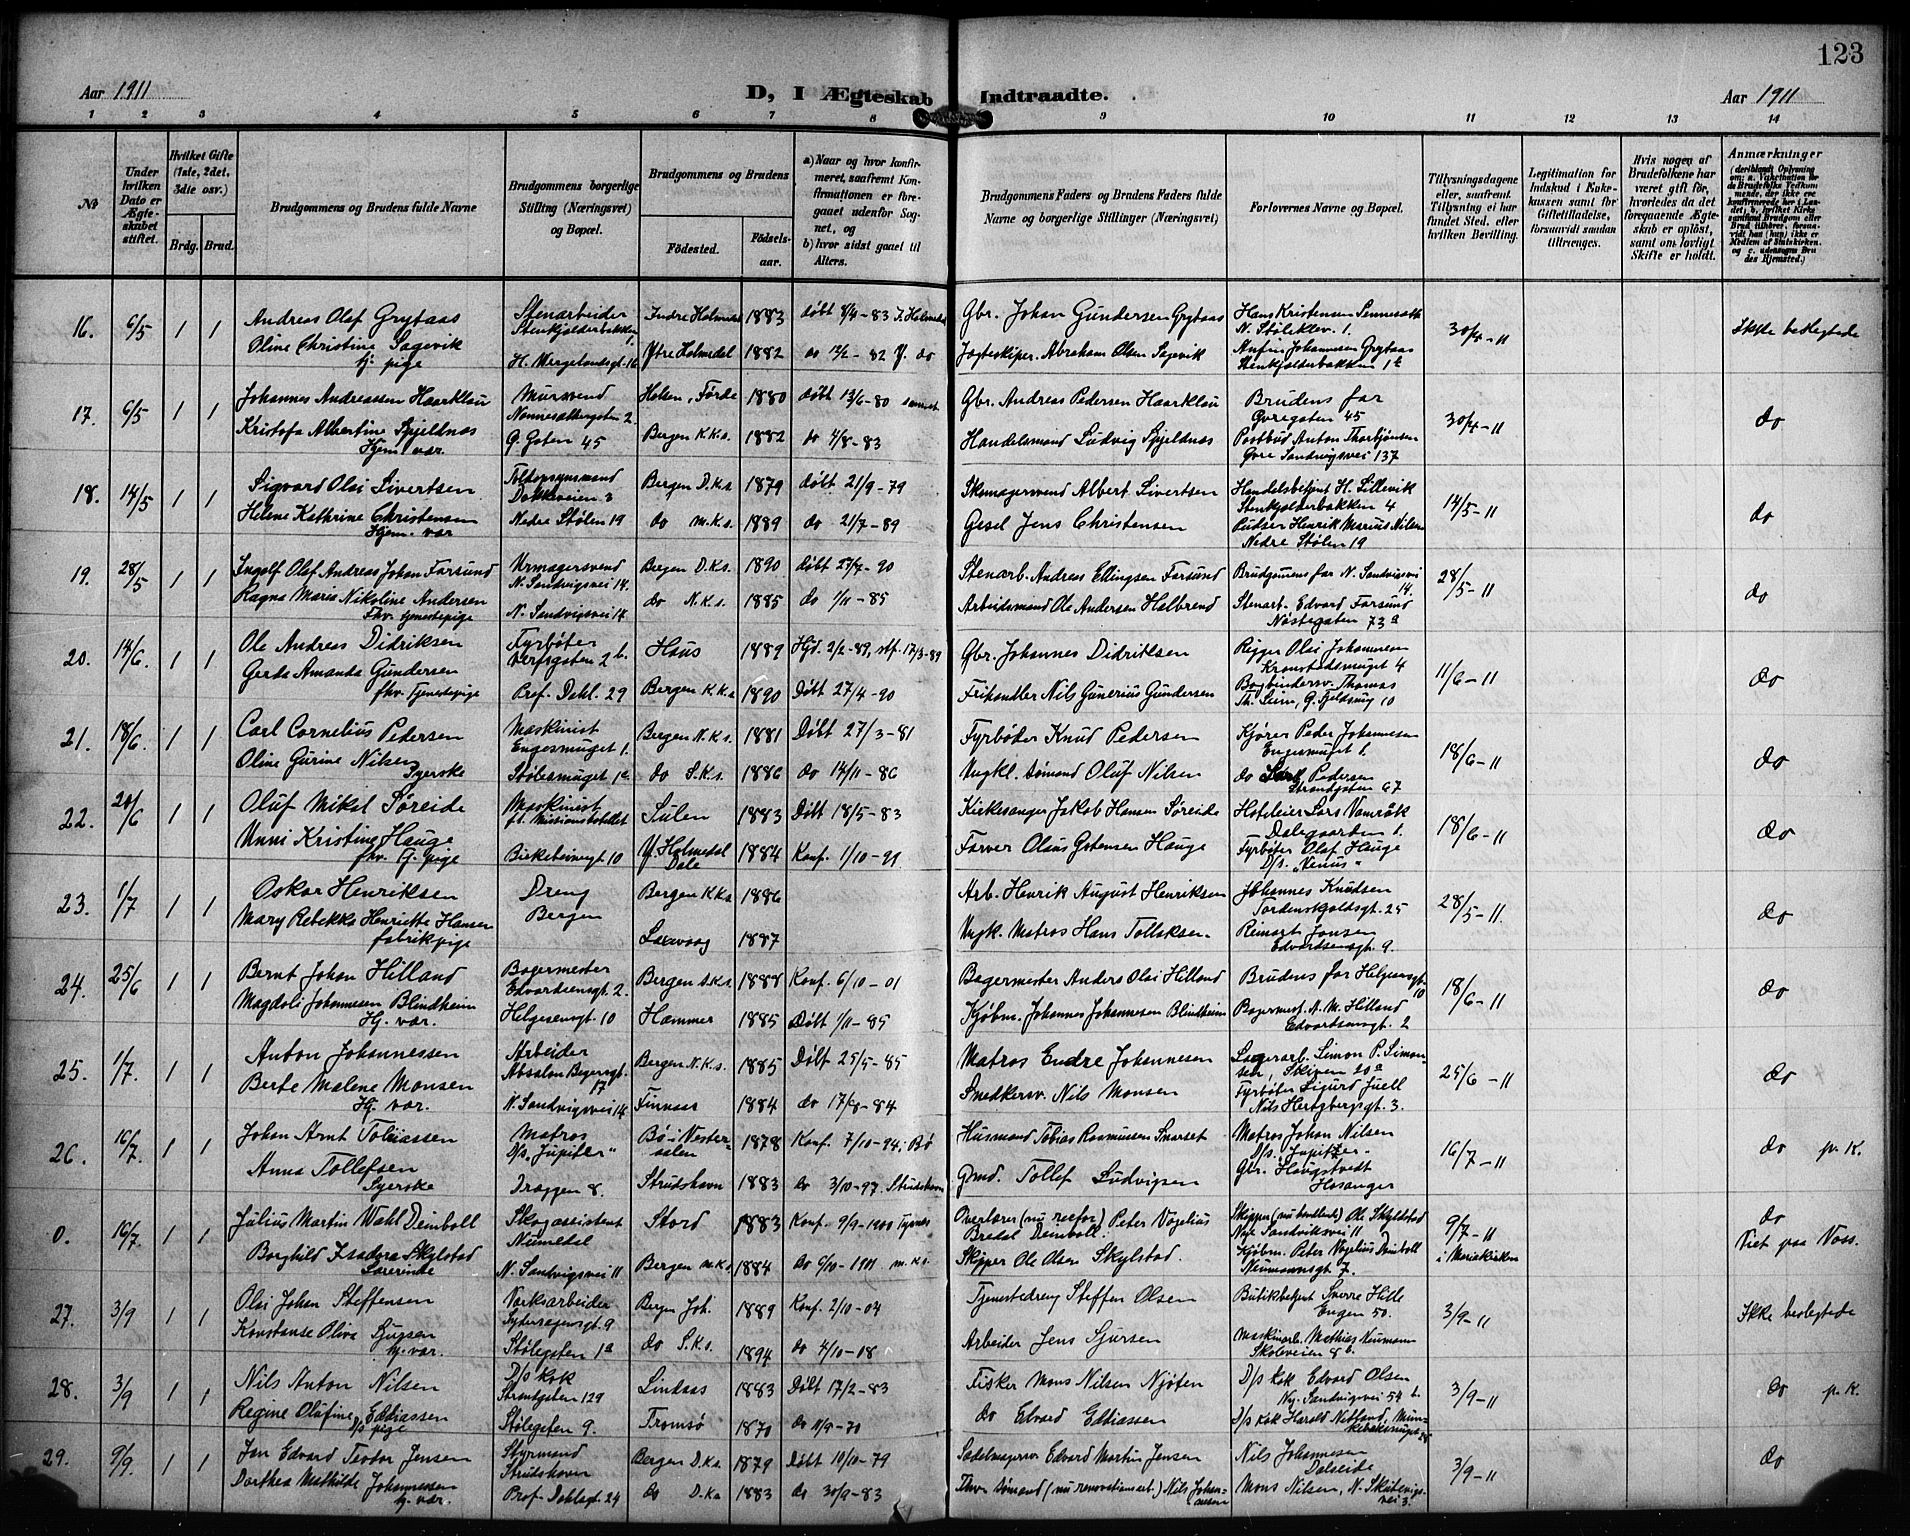 123
Aar 1911
D, I Ægteskab Indtraadte.
Aar 1911
1 2 3 4 5 6 7 8 9 10 11 12 13 14
No
Under hvilken Dato er Ægteskabet stiftet.
Hvilket Gifte (1ste, 2det, 3die osv.)
Brdg. Brud.
Brudgommens og Brudens fulde Navne
Brudgommens borgerlige Stilling (Næringsvei) og Bopæl.
Brudgommens og Brudens
Fødested.
Fødselsaar.
a) Naar og hvor konfirmeret, saafremt Konfirmationen er foregaaet udenfor Sognet, og
b) hvor sidst gaaet til Alters.
Brudgommens Faders og Brudens Faders fulde Navne og borgerlige Stillinger (Næringsvei).
Forlovernes Navne og Bopæl.
Tillysningsdagene eller, saafremt Tillysning ei har fundet Sted, efter hvilken Bevilling.
Legitimation for Indskud i Enkekassen samt for Giftetilladelse, forsaavidt saadan tiltrænges.
Hvis nogen af Brudefolkene har været gift før, hvorledes da det foregaaende Ægteskab er opløst, samt om lovligt Skifte er holdt.
Anmærkninger
16. 6/5 1 1 Andreas Olaf Grytaas Stenarbeider Indre Holmedal 1883 døbt 8/4-83 I. Holmedal Gbr. Johan Gundersen Grytaas Hans Kristensen 30/4-11 Ikke beslegtede
Stenkjelderbakken 1. N. Stølekv. 1.
Oline Christine Sagevik Ytre Holmedal 1882 do 12/2-82 Y. do Jægteskiper Abraham Olsen Sagevik Anfin Johannesen Grytaas
Hj. pige H. Wergelandsgt. 16 Stenkjelderbakken 1b
17. 6/5 1 1 Johannes Andreassen Haarklau Mursvend Holsen, Førde 1880 døbt 13/6-80 Gbr. Andreas Pedersen Haarklau Brudens far 30/4-11 do
Nonnesætergaten 2. Øvregaten 45
Kristofa Albertine Spjeldnæs Ø. Gaten 45 Bergen K.k.s. 1882 do 4/8-83 Handelsmand Ludvig Spjeldnæs Postbud Anton Thorbjønsen
Hjem. vær. Øvre Sandvigsvei 137
18. 14/5 1 1 Sigvard Olai Sivertsen Toldopsynsmand Bergen D.Ks 1879 døbt 21/9-79 Skomagersvend Albert Sivertsen Handelsbetjent H. Lillevik 14/5-11 do
Dokkeveien 3 Stenkjelderbakken 4
Helene Kathrine Christensen Nedre Stølen 19 do M.K.s. 1889 do 21/7-89 Gesel Jens Christensen Pudser Henrik Marius Nilsen
Hjem. vær Nedre Stølen 19
19. 28/5 1 1 Ingolf Olaf Andreas Johan Forsund Urmagersvend Bergen D.Ks. 1890 døbt 27/7-90 Stenarb. Andreas Ellingsen Forsund Brudgomens far N. Sandvigsvei 14. 28/5-11 do
N. Sandvigsvei 14.
Ragna Maria Nikoline Andersen N. Sandvigsvei 14 do N.K.s. 1885 do 1/11-85 Arbeidsmand Ole Andersen Halbrend Stenarb. Edvard Forsund
Fhv. tjenestepige Nøstegaten 73a
20. 14/6. 1 1 Ole Andreas Didriksen Fyrbøter Haus 1889 Hjd. 2/2-89, stf. 17/3-89 Gbr. Johannes Didriksen Rigger Olai Johannesen 11/6-11 do
Verfsgaten 2b. Kronstadsmuget 4
Gerda Amanda Gundersen Prof. Dahl. 29 Bergen K.Ks 1890 Døbt 27/4-90 Frihandler Nils Gunerius Gundersen Bogbindersv. Thomas
fhv. Tjenestepige
21. 18/6. 1 1 Carl Cornelius Pedersen Maskinist Bergen N.Ks. 1881 Døbt 27/3-81 Fyrbøder Knud Pedersen Kjører Peder Johannesen 18/6-11 do
Engesmuget 1. Engesmuget 1.
Oline Gurine Nilsen Stølesmuget 1c do S.K.s. 1886 do 14/11-86 Ungkl. sømand Oluf Nilsen do Pedersen
Syerske Strandgaten 67
22. 20/6 1 1 Oluf Mikal Søreide Maskinist Sulen 1883 Døbt 18/5-83 Kirkesanger Jakob Hansen Søreide Hoteleier Lars Vamråk 18/6-11 do
Missionshotellet Dalegaarden 1.
Unni Kristine Hauge Birkebeinergt. 10 Y. Holmedal Dale 1884 Konf. 1/10-99 Farver Olaus Gotensen Hauge Fyrbøter Olaf Hauge
fhv. Tj. pige D/s. "Venus"
23. 1/7 1 1 Oskar Henriksen Dreng Bergen K.Ks 1886 Arb. Henrik August Henriksen Johannes Knudsen 28/5-11. do
Bergen Tordenskjoldsgt. 25
Mary Rebekka Henriette Hansen Laxevaag 1887 Ungk. Matros Hans Tollaksen. Reinart Jonsen
fabrikpige Edvardsensgt. 9.
24. 25/6 1 1 Bernt Johan Hilland Bagermester Bergen 1888 Konf. 6/10-01 Bagermester Anders Olai Hilland Brudens far Helgesensgt. 10 18/6-11 do
Edvardsensgt. 2.
Magdoli Johannesen Blindheim Helgesensgt. 10 Hammer 1885 Døbt 1/11-85 Kjøbm. Johannes Johannesen Blindheim Bagermest. A. M. Hilland
Hj. vær. Edvardsensgt. 2
25. 1/7. 1 1 Anton Johannessen Arbeider Bergen N.K.s. 1885 Døbt 25/5-85 Matros Endre Johannesen Lagerarb. Simon P. Simonsen, Skiven 20a 25/6-11 do
Absalon Beyersgt. 17
Berte Malene Monsen N. Sandvigsvei 14 Finnaas 1884 do 17/8-84 Smedkersv. Nils Monsen Fyrbøter Sigurd Juell
Hj. vær. Nils Hertzbergsgt. 3.
26. 16/7. 1 1 Johan Arnt Tobiassen Matros Bø i Vesteraalen 1878 Konf. 7/10-94, Bø Husmand Tobias Rasmussen Snarset Matros Johan Nilsen 16/7-11 do p. K.
D/s. "Jupiter" D/s. "Jupiter"
Anna Tollefsen Dræggen 8. Strudshavn 1883 do 3/10-97 Strudshavn Gmd. Tollef Ludvigsen Gbr. Haugstvedt
Syerske Hosanger
0. 16/7. 1 1 Julius Martin Wahl Deinboll Skogassistent Stord 1883 Konf. 9/9-1900 Tysnes Overlærer (nu ) Peter Vogelius Bredal Deinboll. Skipper (nu ) Ole Skylstad 9/7-11 i Mariekirken do
Numedal Nye Sandviksvei 11 Viet paa Voss.
Borghild Isadora Skylstad N. Sandvigsvei 11 Bergen M.Ks. 1884 Do 6/10-1901 M.Ks. Skipper Ole Olsen Skylstad. Kjøbm. Peter Vogelius Deinboll
Lærerinde Neumannsgt 7.
27. 3/9 1 1 Olai Johan Steffensen Verksarbeider Bergen Joh. 1889 Konf. 2/10-04 Tjenestedreng Steffen Olsen Butikbetjent Sverre Hille 3/9-11 Ikke beslegtede
Sydnessgt. 9 Engen 50.
Konstanse Oliva Sjursen Stølegaten 1a do S.K.s. 1894 do 4/10-08 Arbeider Jens Sjursen Maskinarb. Mathias Neumann
hj. vær. Skoleveien 8b.
28. 3/9 1 1 Nils Anton Nilsen D/s kok Lindaas 1883 Døbt 17/2-83 Fisker Mons Nilsen Njøten D/s kok Edvard Olsen 3/9-11 do p. K.
Strandgaten 129 Ny. Sandvigsvei 54b.
Regine Olufine Eddiassen Stølegaten 9. Tromsø 1870 do 11/9-70 do Edvard Eddiassen D/s kok Harald Nitland,
D/s pige
29. 9/9. 1 1 Jan Edvard Teodor Jensen Styrmand Bergen D.Ks 1879 Døbt 10/10-79 Sadelmagersv. Edvard Martin Jensen Nils Johannesen 3/9-11 do
Strudshavn Dalseide
Dorthea Mathilde Johannessen Prof. Dahlsgt. 24 do D.Ks 1883 do 30/9-83 Fhv. sømand (nu renovationsarb.) Nils Johannesen Mons Nilsen, N. Skuteviksvei 3.
hj. vær.